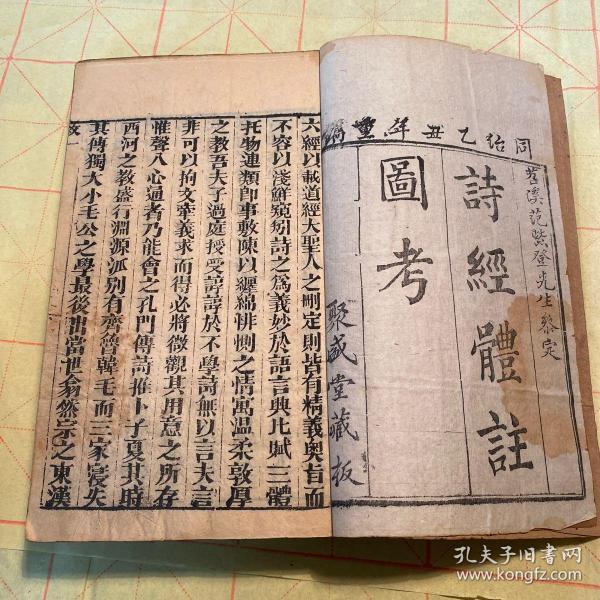 同治乙丑年重鐫
苕溪范紫登先生叅定
詩經體註
圖考
聚盛堂藏板
六經以載道經大聖人之刪定則皆有精義奧旨而
不容以淺鮮窺矧詩之爲義妙於語言典比賦三體
托物連類卽事敷陳以纏綿悱惻之情寓温柔敦厚
之教吾夫子過庭授受諄諄於不學詩無以言夫言
非可以拘文牽義求而得必將微觀其用意之所存
惟聲入心通者乃能會之孔門傳詩推卜子夏其時
西河之教盛行淵源派别有齊魯韓毛而三家寖失
其傳獨大小毛公之學最後出當世翕然宗之東漢
孔夫子旧书网
www.kongfz.com